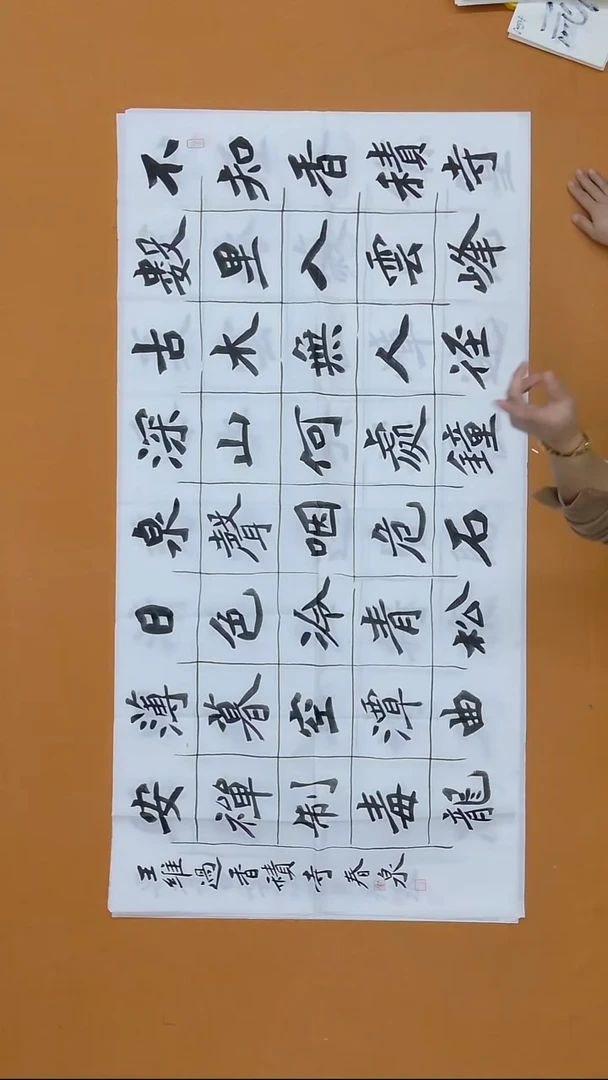 不知香積寺
數里入雲峰
古木無人径
深山何處鐘
泉聲咽危石
日色冷青松
薄暮空潭曲
安禪制毒龍
王維過香積寺春泉